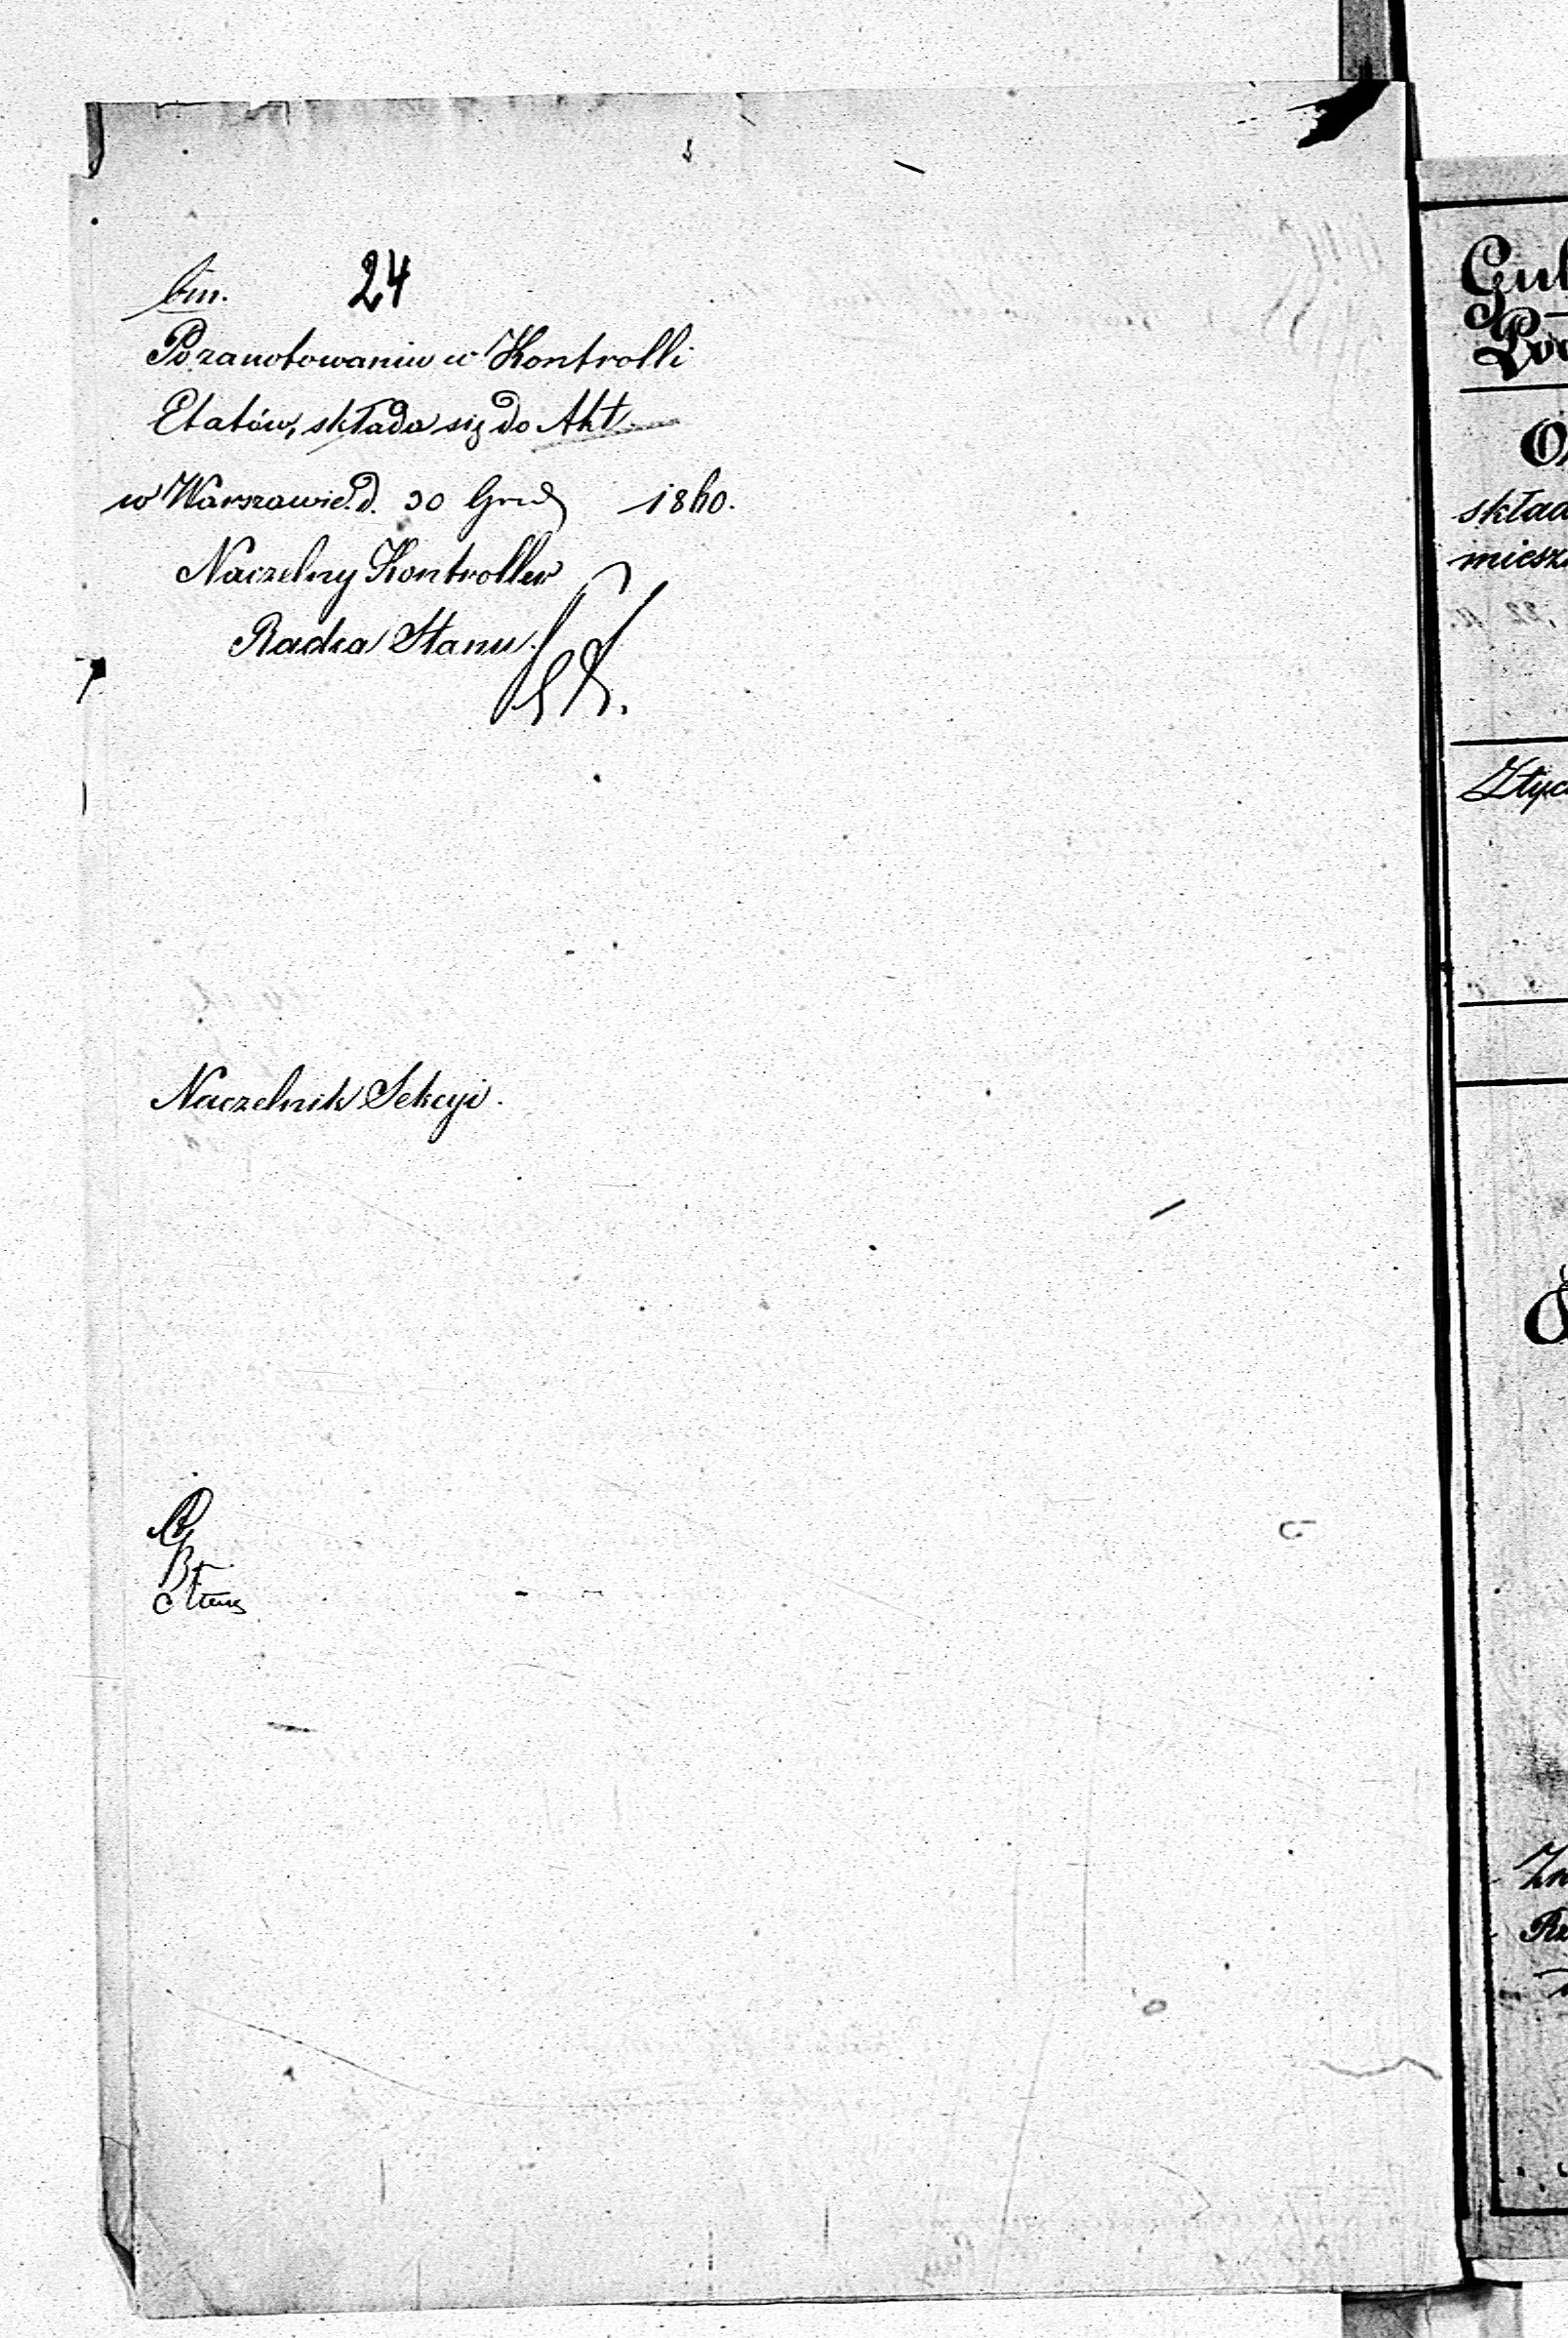 24
Po zanotowaniu w Kontrolli
Etatów, składa się do Akt.
w Warszawie d. 30 Grud 1860.
Naczelny Kontroller
Radca Stanu.
Naczelnik Sekcyi.
Gub
Pow
skład
miesz
Ztyc